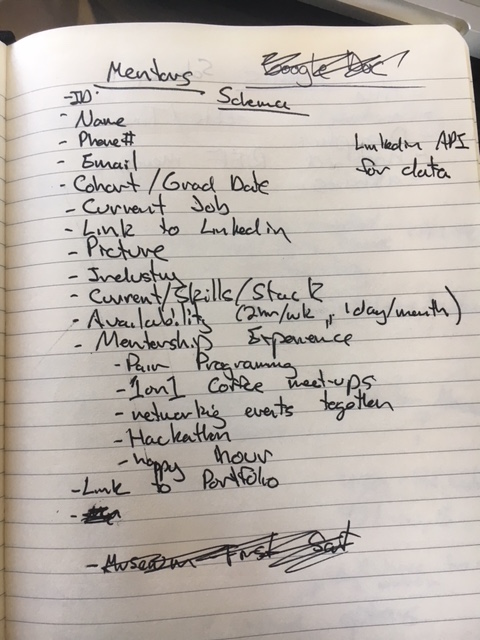 Mentors
Google Doc
Schema
-ID:
- Name
- Phone#
- Email
LinkedIn API
for data
- Cohort / Grad Date
- Current Job
- Link to Linkedin
- Picture
- Industry
- Current/Skills/Stack
- Availability (2hr/wk, 1day/month)
- Mentership Experience
- Pair Programing
- 1on1 Coffee meet-ups
- networkig events together
- Hackathon
- happy hour
- Link to Portfolio
- Museum First Sat